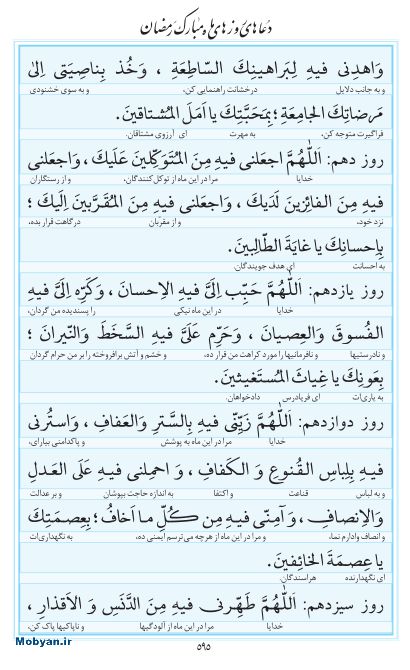 دعاهای روزهای ماه مبارک رمضان
وَاهدِنی فیهِ لِبَراهینِكَ السّاطِعَةِ ، وَخُذ بِناصِیَتی اِلیٰ
و به جانب دلایل درخشانت راهنمایی کن، و به سوی خشنودی
مَرضاتِكَ الجامِعَةِ ؛ بِمَحَبَّتِكَ یا اَمَلَ المُشتاقینَ.
فراگیرت متوجه کن، به مهرت ای آرزوی مشتاقان.
روز دهم: اَللّٰهُمَّ اجعَلنی فیهِ مِنَ المُتَوَكِّلینَ عَلَیكَ ، وَاجعَلنی
خدایا مرا در این ماه از توکل‌کنندگان، و از رستگاران
فیهِ مِنَ الفائِزینَ لَدَیكَ ، وَاجعَلنی فیهِ مِنَ المُقَرَّبینَ اِلَیكَ ؛
نزد خود، و از مقربان درگاهت قرار بده،
بِاِحسانِكَ یا غایَةَ الطّالِبینَ.
به احسانت ای هدف جویندگان.
روز یازدهم: اَللّٰهُمَّ حَبِّب اِلَیَّ فیهِ الاِحسانَ ، وَكَرِّه اِلَیَّ فیهِ
خدایا در این ماه نیکی را پسندیده من گردان،
الفُسوقَ وَالعِصیانَ ، وَحَرِّم عَلَیَّ فیهِ السَّخَطَ وَالنّیرانَ ؛
و نادرستیها و نافرمانیها را مورد کراهت من قرار ده، و خشم و آتش برافروخته را بر من حرام گردان
بِعَونِكَ یا غِیاثَ المُستَغیثینَ.
به یاری‌ات ای فریادرس دادخواهان.
روز دوازدهم: اَللّٰهُمَّ زَیِّنّی فیهِ بِالسَّترِ وَالعَفافِ ، وَاستُرنی
خدایا مرا در این ماه به پوشش و پاکدامنی بیارای،
فیهِ بِلِباسِ القُنوعِ وَ الكَفافِ ، وَ احمِلنی فیهِ عَلَی العَدلِ
و به لباس قناعت و اکتفا به اندازه حاجت بپوشان و بر عدالت
وَالاِنصافِ ، وَ آمِنّی فیهِ مِن كُلِّ ما اَخافُ ؛ بِعِصمَتِكَ
و انصاف وادارم نما، و مرا در این ماه از هرچه می‌ترسم ایمنی ده، به نگهداری‌ات
یا عِصمَةَ الخائِفینَ.
ای نگهدارنده هراسندگان.
روز سیزدهم: اَللّٰهُمَّ طَهِّرنی فیهِ مِنَ الدَّنَسِ وَ الاَقذارِ ،
خدایا مرا در این ماه از آلودگیها و ناپاکیها پاک کن،
۵۹۵
Mobyan.ir